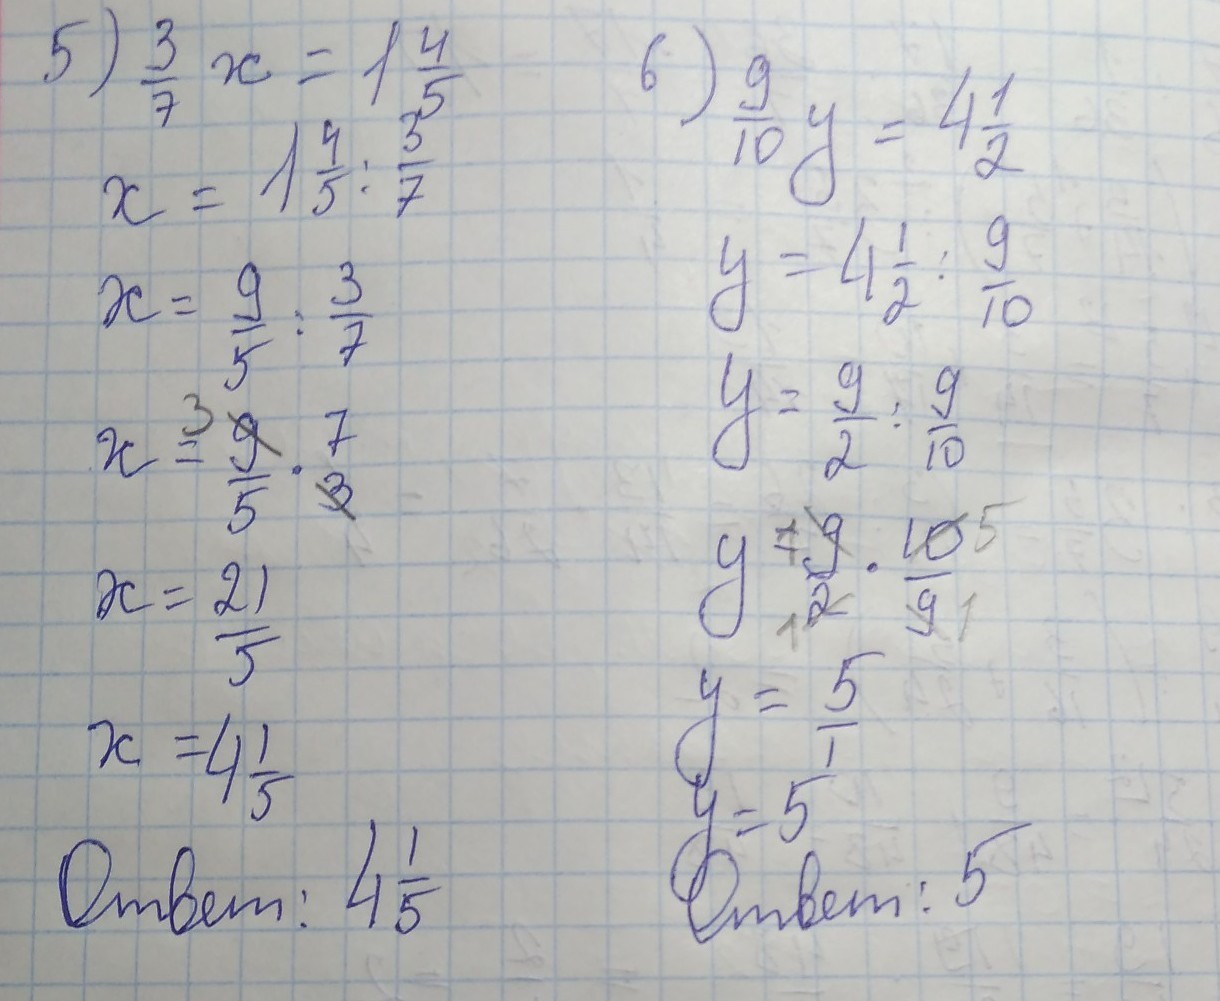 5) 3/7 x = 1 4/5
x = 1 4/5 : 3/7
x = 9/5 : 3/7
x = 3 9/5 · 7/3
x = 21/5
x = 4 1/5
Ответ: 4 1/5
6) 9/10 y = 4 1/2
y = 4 1/2 : 9/10
y = 9/2 : 9/10
y = 9/2 1 · 10/9 5 1
y = 5/1
y = 5
Ответ: 5